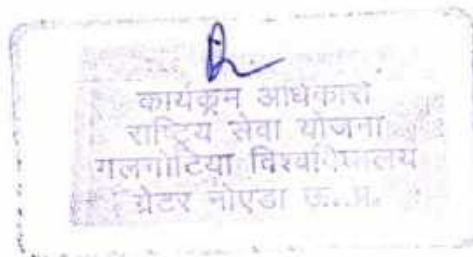 कार्यक्रम अधिकारी
राष्ट्रिय सेवा योजना
गलगोटिया विश्वविद्यालय
ग्रेटर नोएडा उ..प्र.